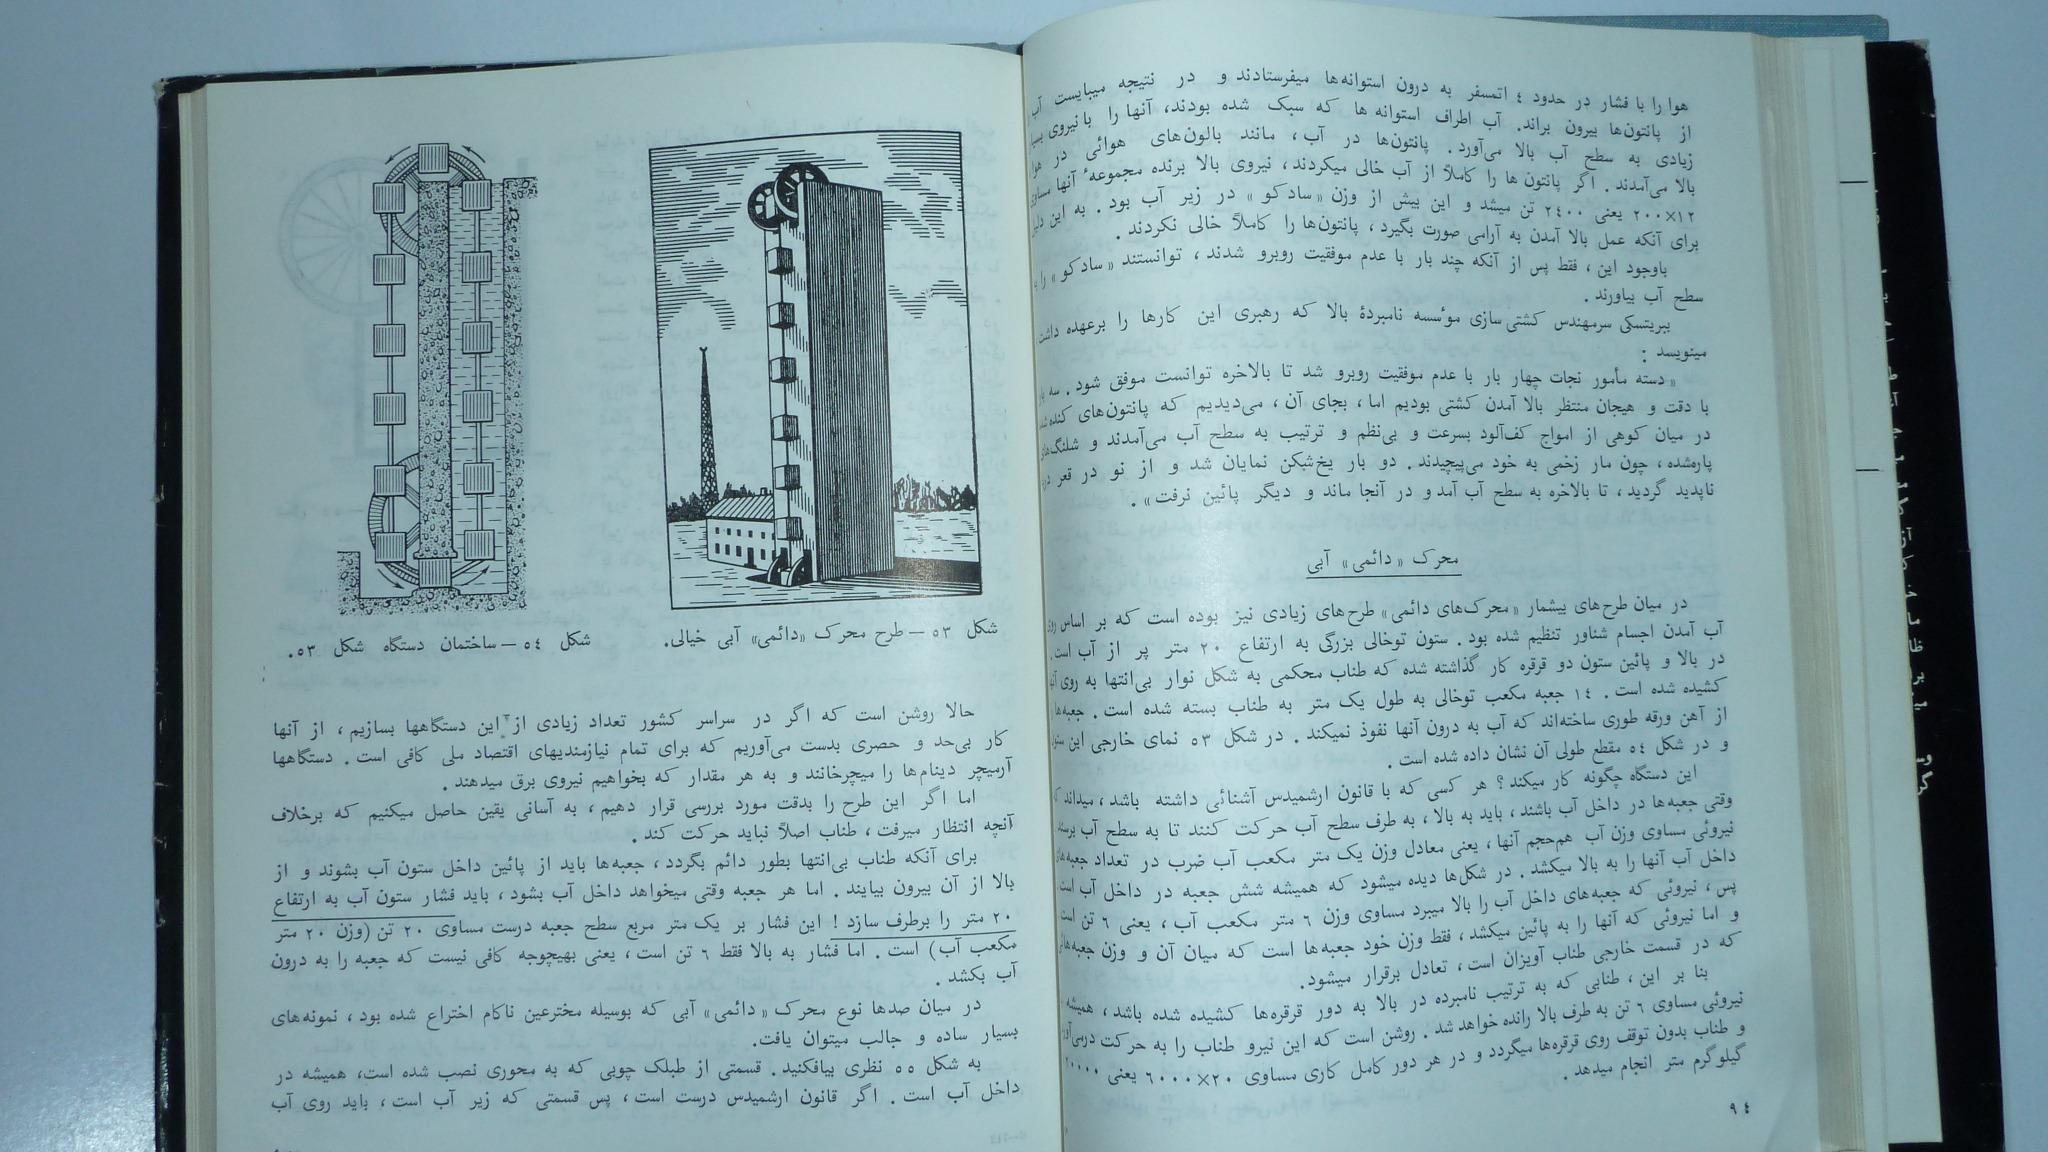 هوا را با فشار در حدود ٤ اتمسفر به درون استوانه‌ها میفرستادند و در نتیجه میبایست آب
از پانتون‌ها بیرون براند. آب اطراف استوانه ها که سبک شده بودند، آنها را با نیروی
زیادی به سطح آب بالا می‌آورد. پانتون‌ها در آب، مانند بالون‌های هوائی در
بالا می‌آمدند. اگر پانتون ها را کاملاً از آب خالی میکردند، نیروی بالا برنده مجموعهٔ آنها
١٢×٢٠٠ یعنی ٢٤٠٠ تن میشد و این بیش از وزن «سادکو» در زیر آب بود. به این
برای آنکه عمل بالا آمدن به آرامی صورت بگیرد، پانتون‌ها را کاملاً خالی نکردند.
باوجود این، فقط پس از آنکه چند بار با عدم موفقیت روبرو شدند، توانستند «سادکو» را
سطح آب بیاورند.
ببریتسکی سرمهندس کشتی سازی مؤسسه نامبردهٔ بالا که رهبری این کارها را برعهده داشت
مینویسد:
«دسته مأمور نجات چهار بار با عدم موفقیت روبرو شد تا بالاخره توانست موفق شود. سه
با دقت و هیجان منتظر بالا آمدن کشتی بودیم اما، بجای آن، می‌دیدیم که پانتون‌های کنده
در میان کوهی از امواج کف‌آلود بسرعت و بی‌نظم و ترتیب به سطح آب می‌آمدند و
پاره‌شده، چون مار زخمی به خود می‌پیچیدند. دو بار یخ‌شکن نمایان شد و از نو در قعر
ناپدید گردید، تا بالاخره به سطح آب آمد و در آنجا ماند و دیگر پائین نرفت».
محرک «دائمی» آبی
در میان طرح‌های بیشمار «محرک‌های دائمی» طرح‌های زیادی نیز بوده است که بر اساس
آب آمدن اجسام شناور تنظیم شده بود. ستون توخالی بزرگی به ارتفاع ٢٠ متر پر از آب است.
در بالا و پائین ستون دو قرقره کار گذاشته شده که طناب محکمی به شکل نوار بی‌انتها به روی
کشیده شده است. ١٤ جعبه مکعب توخالی به طول یک متر به طناب بسته شده است. جعبه‌ها
از آهن ورقه طوری ساخته‌اند که آب به درون آنها نفوذ نمیکند. در شکل ٥٣ نمای خارجی این ستون
و در شکل ٥٤ مقطع طولی آن نشان داده شده است.
این دستگاه چگونه کار میکند؟ هر کسی که با قانون ارشمیدس آشنائی داشته باشد، میداند
وقتی جعبه‌ها در داخل آب باشند، باید به بالا، به طرف سطح آب حرکت کنند تا به سطح آب
نیروئی مساوی وزن آب هم‌حجم آنها، یعنی معادل وزن یک متر مکعب آب ضرب در تعداد جعبه‌های
داخل آب آنها را به بالا میکشد. در شکل‌ها دیده میشود که همیشه شش جعبه در داخل آب است.
پس، نیروئی که جعبه‌های داخل آب را بالا میبرد مساوی وزن ٦ متر مکعب آب، یعنی ٦ تن است
و اما نیروئی که آنها را به پائین میکشد، فقط وزن خود جعبه‌ها است که میان آن و وزن جعبه‌هائی
که در قسمت خارجی طناب آویزان است، تعادل برقرار میشود.
بنا بر این، طنابی که به ترتیب نامبرده در بالا به دور قرقره‌ها کشیده شده باشد، همیشه
نیروئی مساوی ٦ تن به طرف بالا رانده خواهد شد. روشن است که این نیرو طناب را به حرکت
و طناب بدون توقف روی قرقره‌ها میگردد و در هر دور کامل کاری مساوی ٢٠×٦٠٠٠ یعنی
گیلوگرم متر انجام میدهد.
٩٤
شکل ٥٣ — طرح محرک «دائمی» آبی خیالی.
شکل ٥٤ — ساختمان دستگاه شکل ٥٣.
حالا روشن است که اگر در سراسر کشور تعداد زیادی از این دستگاهها بسازیم، از آنها
کار بی‌حد و حصری بدست می‌آوریم که برای تمام نیازمندیهای اقتصاد ملی کافی است. دستگاهها
آرمیچر دینام‌ها را میچرخانند و به هر مقدار که بخواهیم نیروی برق میدهند.
اما اگر این طرح را بدقت مورد بررسی قرار دهیم، به آسانی یقین حاصل میکنیم که برخلاف
آنچه انتظار میرفت، طناب اصلاً نباید حرکت کند.
برای آنکه طناب بی‌انتها بطور دائم بگردد، جعبه‌ها باید از پائین داخل ستون آب بشوند و از
بالا از آن بیرون بیایند. اما هر جعبه وقتی میخواهد داخل آب بشود، باید فشار ستون آب به ارتفاع
٢٠ متر را برطرف سازد! این فشار بر یک متر مربع سطح جعبه درست مساوی ٢٠ تن (وزن ٢٠ متر
مکعب آب) است. اما فشار به بالا فقط ٦ تن است، یعنی بهیچوجه کافی نیست که جعبه را به درون
آب بکشد.
در میان صدها نوع محرک «دائمی» آبی که بوسیله مخترعین ناکام اختراع شده بود، نمونه‌های
بسیار ساده و جالب میتوان یافت.
به شکل ٥٥ نظری بیافکنید. قسمتی از طبلک چوبی که به محوری نصب شده است، همیشه در
داخل آب است. اگر قانون ارشمیدس درست است، پس قسمتی که زیر آب است، باید روی آب